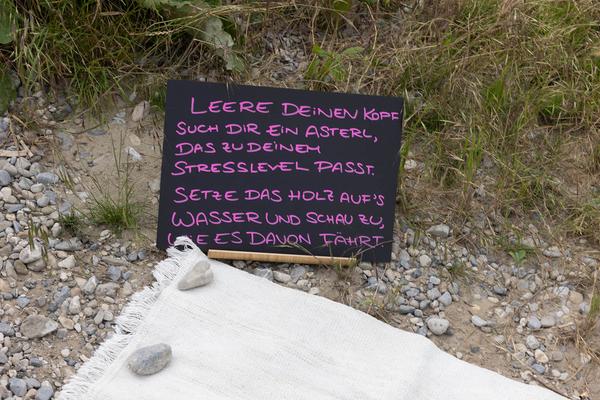 LEERE DEINEN KOPF
SUCH DIR EIN ASTERL,
DAS ZU DEINEM
STRESSLEVEL PASST.
SETZE DAS HOLZ AUF'S
WASSER UND SCHAU ZU,
WIE ES DAVON FÄHRT